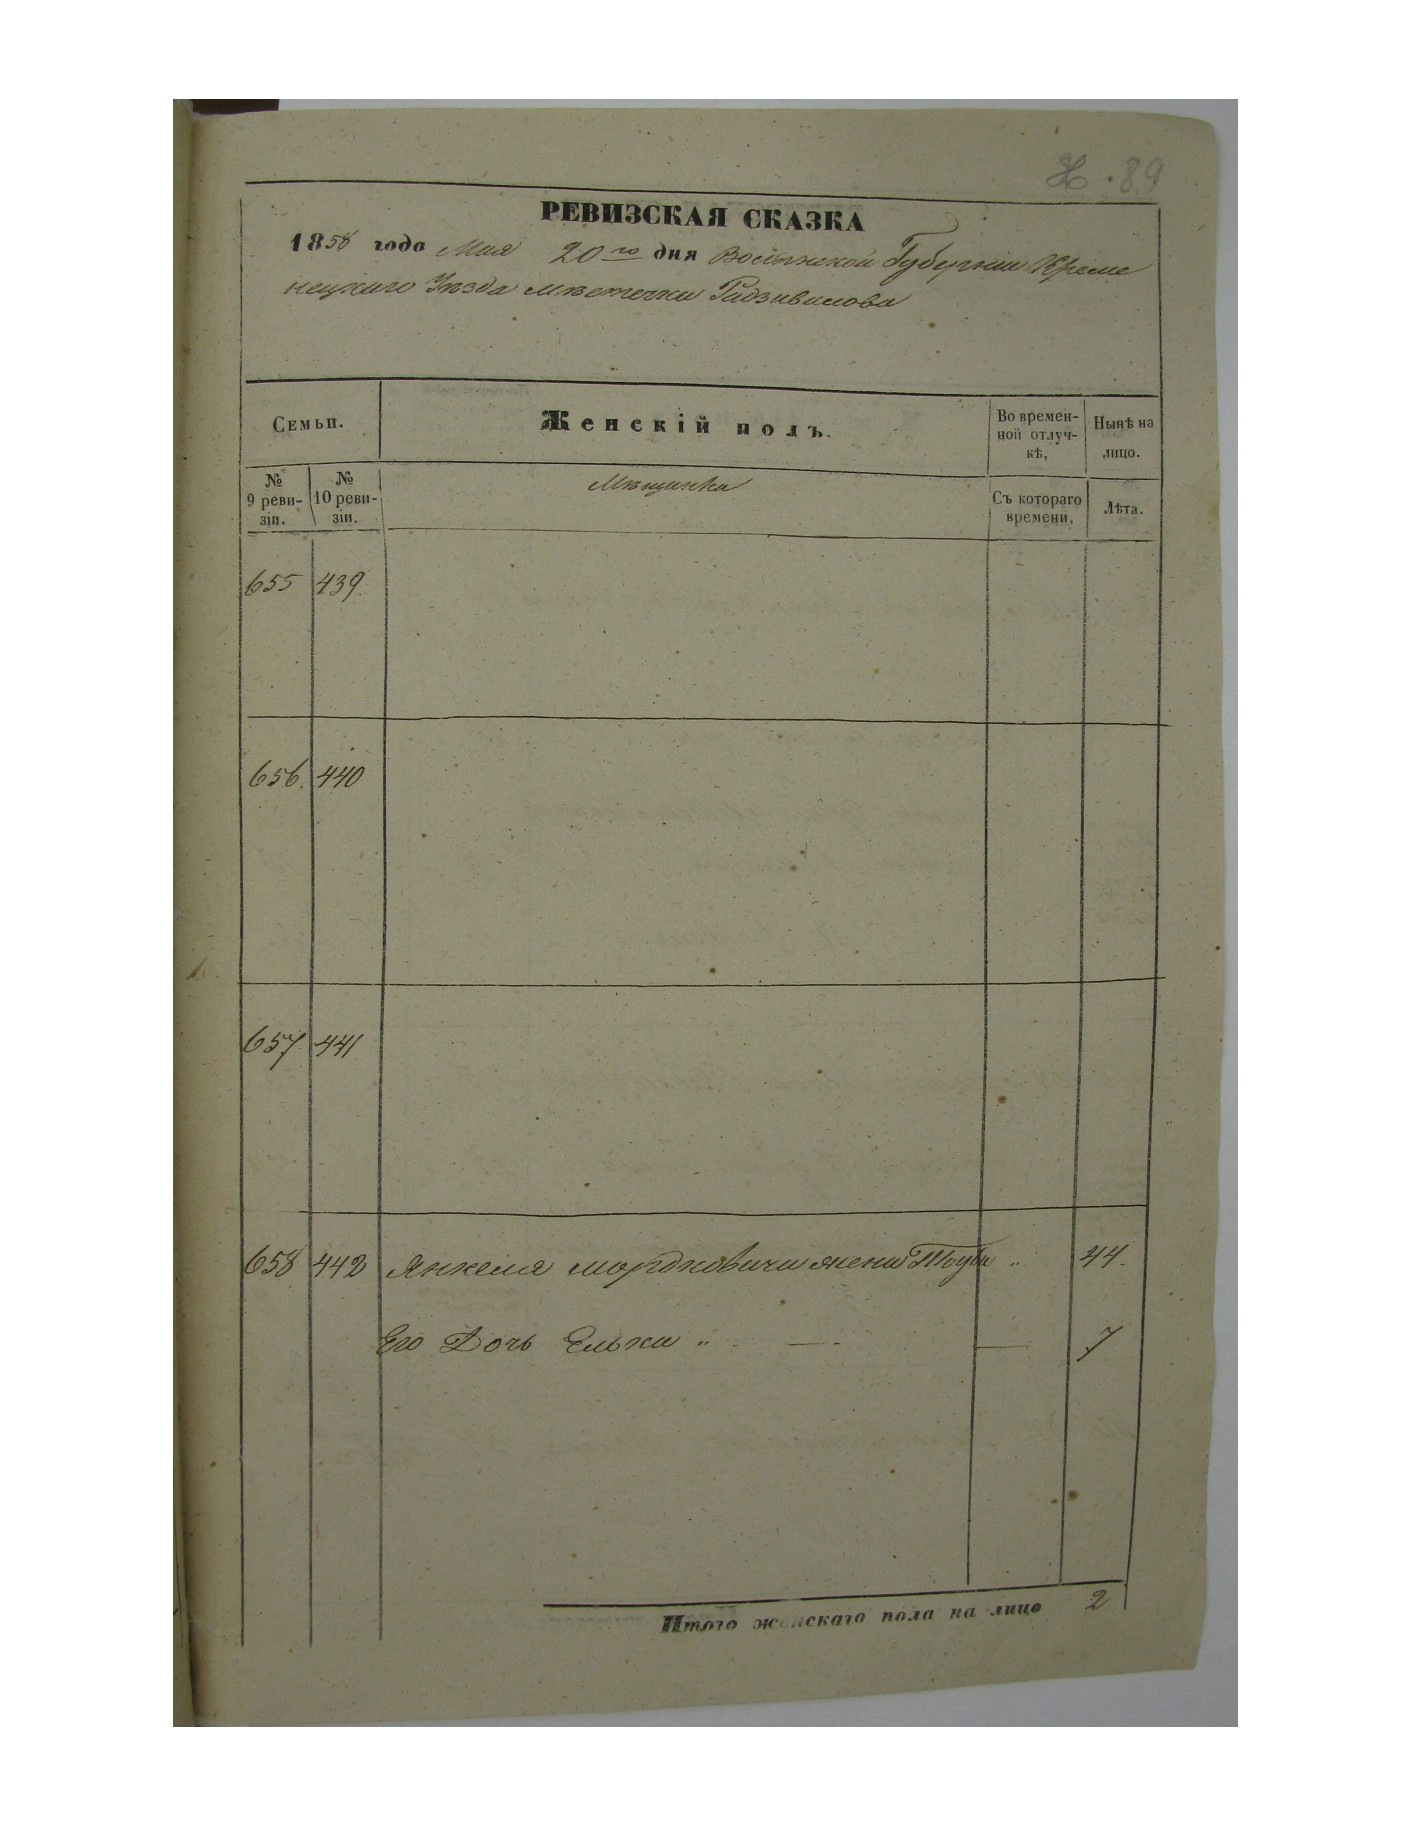 Ж. 89
РЕВИЗСКАЯ СКАЗКА
1858 года Мая 20го дня Волынской Губерніи Креме
нецкаго Уѣзда мѣстечка Радзивилова
Семьи.
Женскій полъ.
Во времен-
ной отлуч-
кѣ,
Нынѣ на
лицо.
№
9 реви-
зіи.
№
10 реви-
зіи.
Мѣщанка
Съ котораго
времени.
Лѣта.
655 439.
656. 440
657 441
658 442 Янкеля Мордковича жена " 44.
Его Дочь Елька " — — 7
Итого женскаго пола на лицо 2